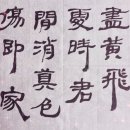 盡黃飛
夏時君
間消真色
傷即家